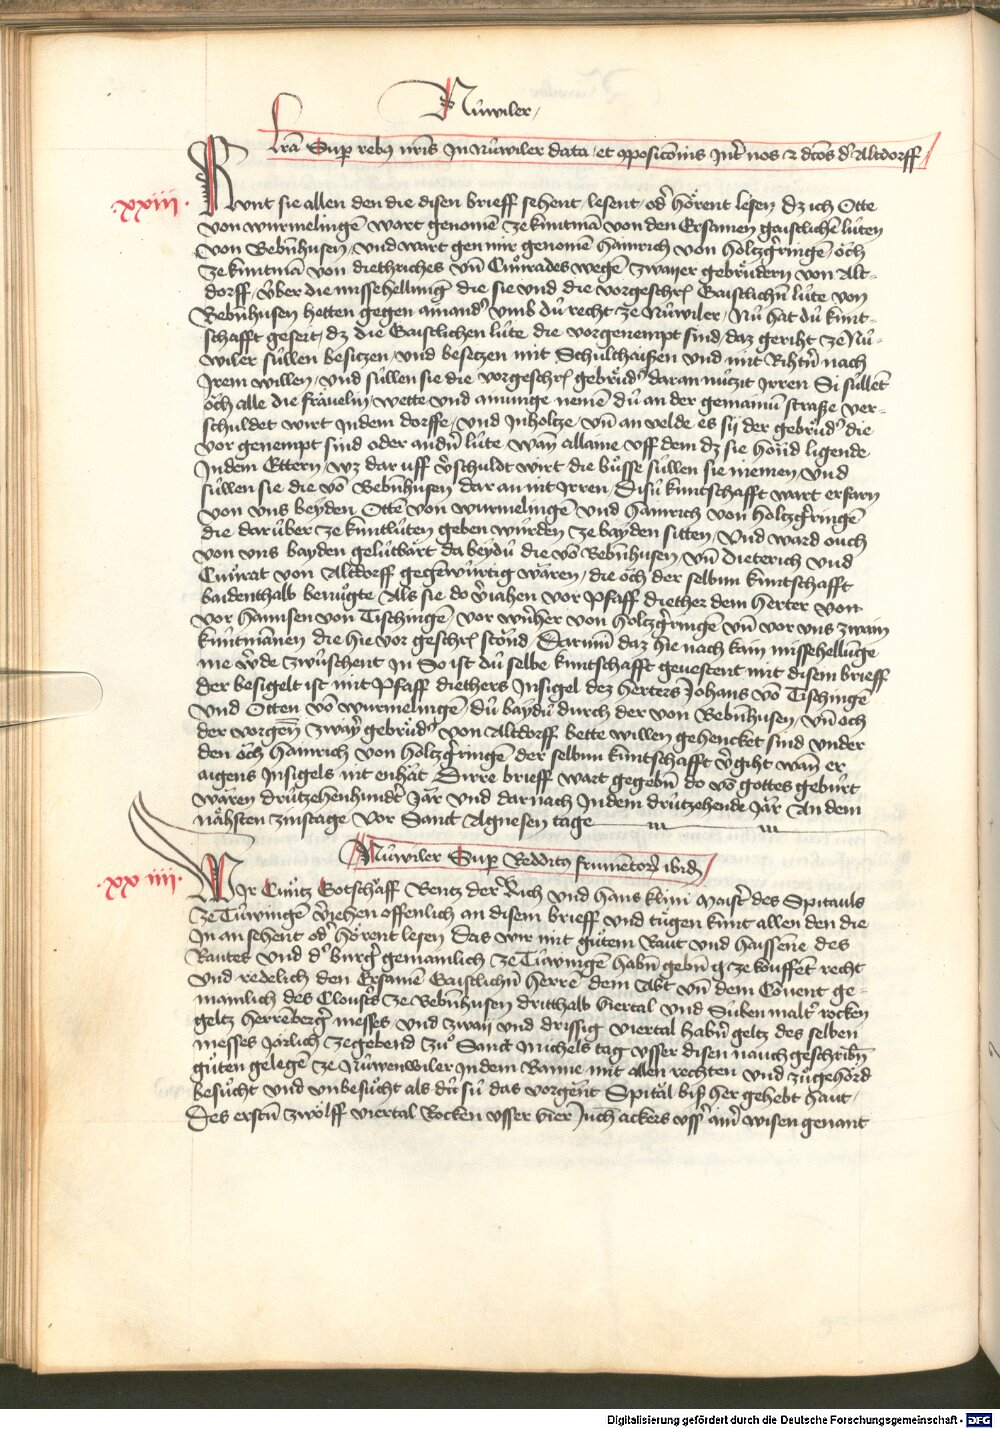 Nüwiler
Lr̃a Sup̲ rebꝯ nr̃is In Nüwiler data et ꝯposicõnis Int̃ nos ⁊ dc̃os d̾ Altdorff
·xxiii·
Kunt sie allen den die disen brieff sehent / lesent / od̾ hoͤrent lesen dz ich Otte
von wurmelingẽ wart genomẽ ze kuntmã von den Ersamen gaistlichẽ lüten
von Bebñhusen / vnd wart gen mir genomẽ Hainrich von Holtzgͥringẽ / oͮch
ze kuntmã von diethriches vñ Cuͦnrades wegẽ zwaÿer gebruͤdern von Alt-
dorff / v̈ber die missehellung̾ die sie vnd die vorgeschrͥ Gaistlichñ lüte von
Bebñhusen hetten gegen ainand̾ vmb dü recht ze Nüwiler / Nü hat dü kunt-
schafft geseit / dz die Gaistlichen lüte die vorgenempt sind / daz geriht ze Nü-
wiler süllen besitzen / vnd besetzen mit Schulthaißen vnd mit Rihtñ nach
Irem willen / vnd süllen sie die vorgeschrͥ gebruͤd̾ daran nützit Irren Si süllẽt
oͮch alle die fraͤuelin / wette vnd ainunge nemẽ dü an der gemainũ straße ver-
schuldet wirt Indem dorffe / vnd Inholtze / vñ an velde es sÿ der gebruͤd̾ die
vor genempt sind oder andñ lüte wañ allaine vff dem dz sie hoͤnd ligende
Indem Ettern / wz dar uff v̾schuldt wirt die buͦsse süllen sie niemen / vnd
süllen sie die võ Bebñhusen dar an nit Irren / Disü kuntschafft wart erfarn
von vns beyden Ottẽ von wurmelingẽ vnd Hainrich von holtzgͥringẽ
die darüber ze kuntlüten geben wurden ze bayden sitten / Vnd ward ouch
von vns bayden gelütbärt da beydü die võ Bebñhusen / vñ Dieterich vnd
Cuͦnrat von Altdorff gegẽwürtig wären / die oͮch der selbun kuntschafft
baidenthalb benuͦgte Als sie do v̾iahen vor Pfaff diether dem Herter von
vor Hannsen von Tischingẽ / vor wñher von Holtzgͥringẽ vñ vor vns zwain
kuntmãnen die hie vor geschrͥ stond / Darum̃ daz hie nach kain missehellũge
me w̾de zwüschent In So ist dü selbe kuntschafft geuestent mit disem brieff
der besigelt ist mit Pfaff diethers Insigel dez herters Johans võ Tischingẽ
vnd Otten võ wurmelingẽ / dü baydü durch der von Bebñhusen / vñ och
der vorgeñ zwaÿ gebruͤd̾ von Altdorff bette willen gehencket sind vnder
den oͮch Hainrich von holtzgͥringẽ der selbun kuntschafft v̾giht wañ er
aigens Insigels nit enhät Dirre brieff wart gegebñ do võ gottes geburt
wären drützehenhundt̾ Jär vnd darnach Indem drützehende Jär An dem
nähsten zinstage vor Sanct Agnesen tage
Nüwiler Sup̲ Redditꝰ frumẽtoꝝ ibid̾
·xx iiii·
Wir Cuͦntz Gotschäff Bentz der Rich vnd hans klini Maist̾ des Spitauls
ze Tüwingẽ v̾iehen offenlich an disem brieff vnd tuͤgen kunt allen den die
In an sehent od̾ hoͤrent lesen Das wir mit guͦtem Raut vnd haissene des
Rautes vnd d̾ burg̾ gemainlich ze Tüwingẽ habñ gebñ ꝫ ze kouffent recht
vnd redelich den Ersamẽ Gaistlichñ herrẽ dem Abt vñ dem Couent ge-
mainlich des Clousters ze Bebñhusen dritthalb viertal vnd Süben malt̾ rocken
geltz herrẽberg̾ messes / vnd zwaÿ vnd drissig viertal habñ geltz des selben
messes Järlich zegebend zuͦ Sanct Michels tag vsser disen nauchgeschribñ
guͤten gelegẽ ze Nüwenwiler Indem Banne mit allen rechten vnd zuͦgehoͤrd
besuͦcht vnd vnbesuͦcht als dü sü das vorgeñt Spitäl biß her gehebt haut /
Des erstñ zwoͤlff viertal Rocken vsser vier Juch ackers vss̾ ain̾ wisen genant
Digitalisierung gefördert durch die Deutsche Forschungsgemeinschaft - DFG